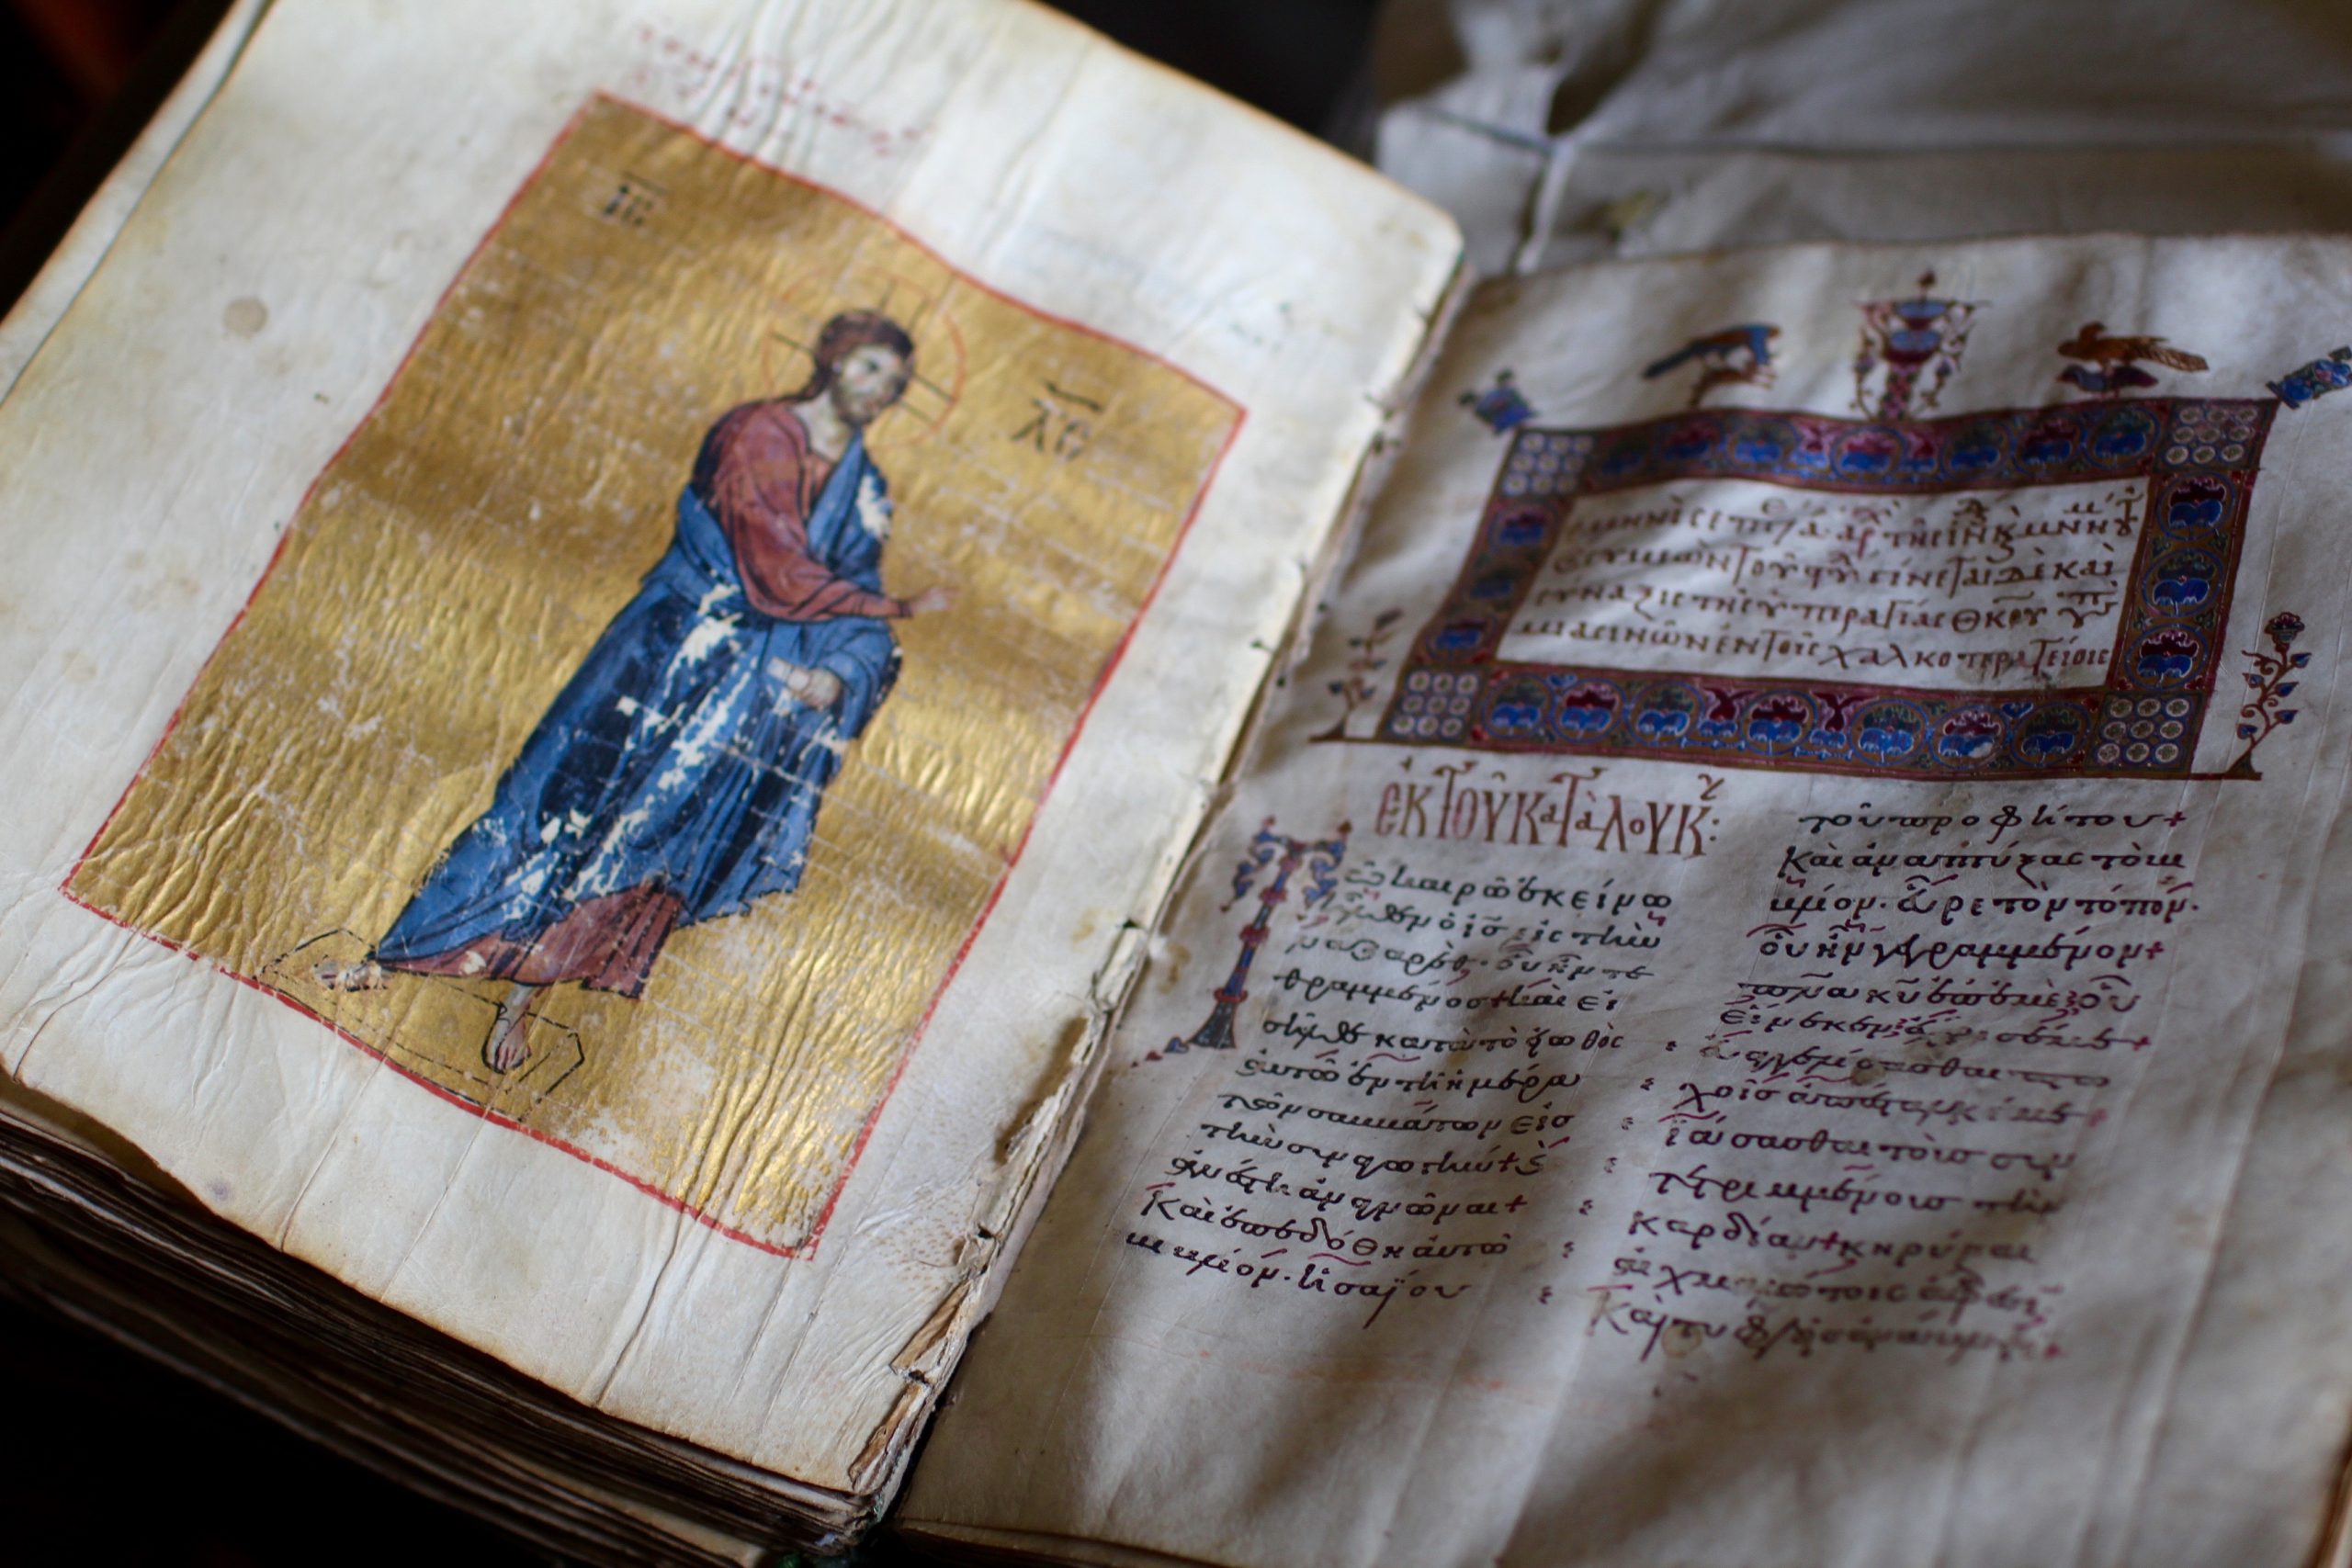 ΙC
ΧC
σύναξις της ὑπεραγίας Θκου
ἐν τοις χαλκοπρατείοις
ἐκ τοῦ κατὰ λουκ:
Τῶ καιρῶ ἐκείνω
ἦλθεν ὁ ἰς εἰς τὴν
ναζαρέθ· οὗ ἦν τε
θραμμένος+ καὶ εἰ
σῆλθε κατὰ τὸ εἰωθὸς
ἀυτῶ ἐν τῆ ἡμέρα
τῶν σαββάτων εἰς
τὴν συναγωγὴν+ ἀ
νέστη ἀναγνῶναι+
Καὶ ἐπεδόθη ἀυτῶ
βιβλίον. ἡσαΐου
τοῦ προφήτου+
Καὶ ἀναπτύξας τὸ βι
βλίον. εὗρε τὸν τόπον.
οὗ ἦν γεγραμμένον+
πνα κυ ἐπ' ἐμὲ· οὗ
εἵνεκεν ἔχρισέ με+
ἐυαγγελίσασθαι πτω
χοῖς ἀπέσταλκέ με+
ἰάσασθαι τοὺς συν
τετριμμένους τὴν
καρδίαν+ κηρύξαι
αἰχμαλώτοις ἄφεσιν
Καὶ τυφλοῖς ἀνάβλεψιν+